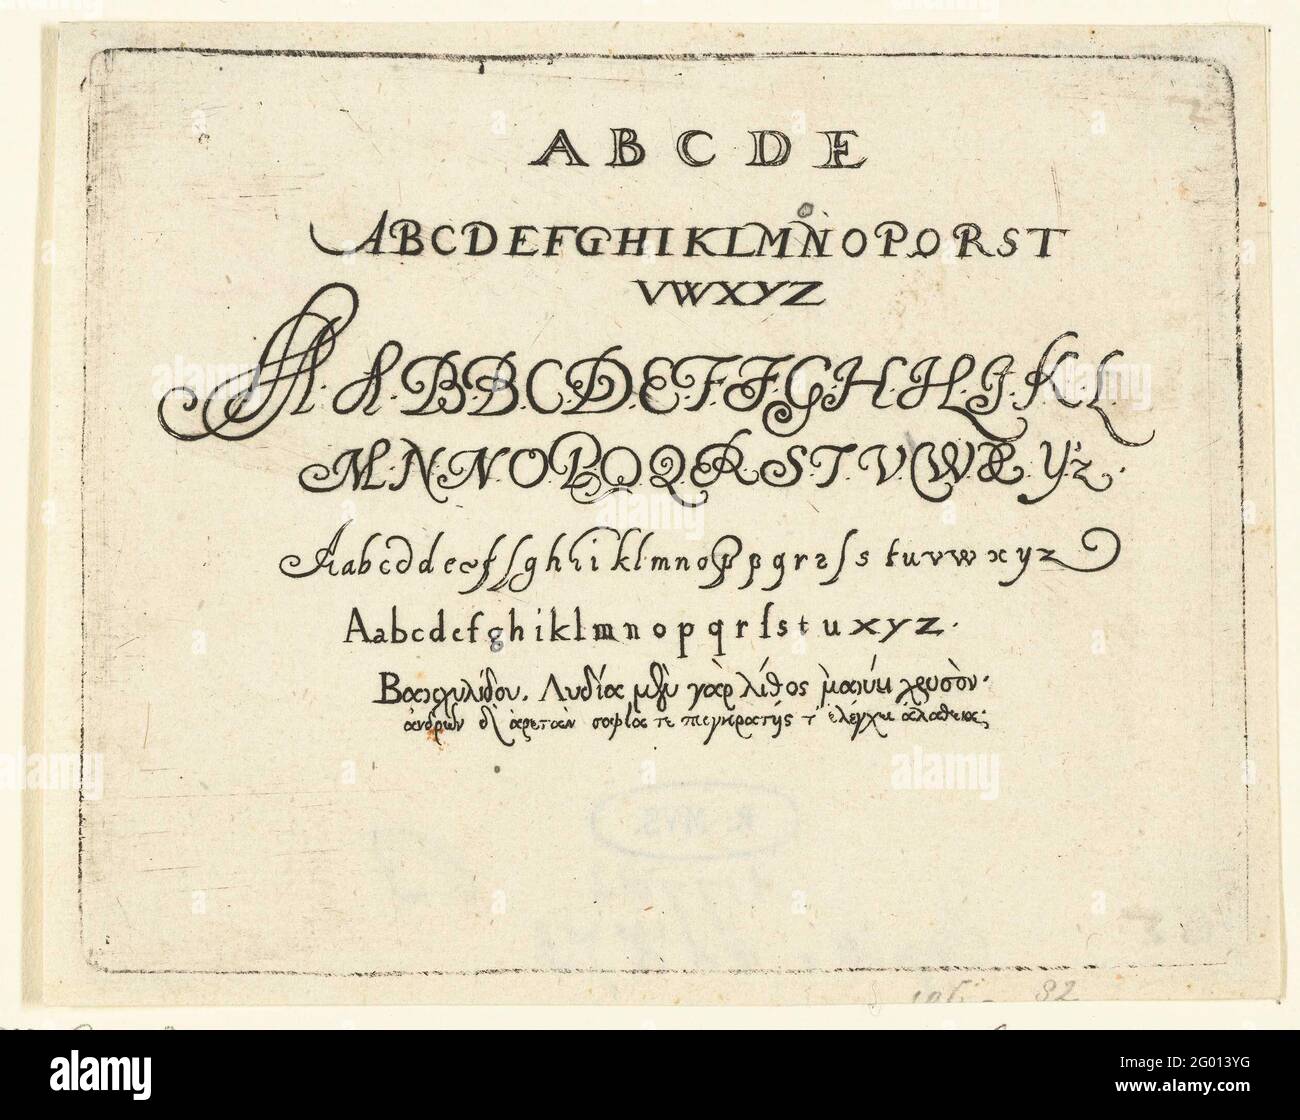 A B C D E
ABCDEFGHIKLMNOPQRST
VWXYZ
A.A.B.B.C.D.E.F.F.G.H.H.I.K.L
M.N.N.O.P.Q.Q.R.S.T.V.W.X.Y.Z.
Aabcddeefſſghhiiklmnopppqrsſs tuvwxyz
Aabcdefghiklmnopqrſstuxyz.
Βακχυλίδου. Λυδία μὲν γὰρ λίθος μανύει χρυσὸν.
ἀνδρῶν δ' ἀρετὰν σοφία τε παγκρατής τ' ἐλέγχει ἀλάθεια.
R. MVS.
82
alamy
Image ID: 2G013YG
www.alamy.com